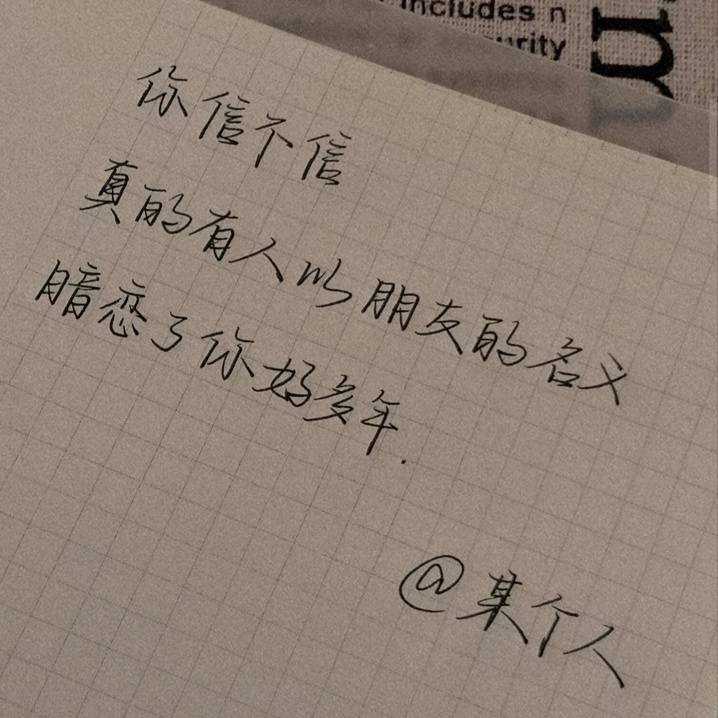 includes n
urity
m
你信不信
真的有人以朋友的名义
暗恋了你好多年.
@某个人